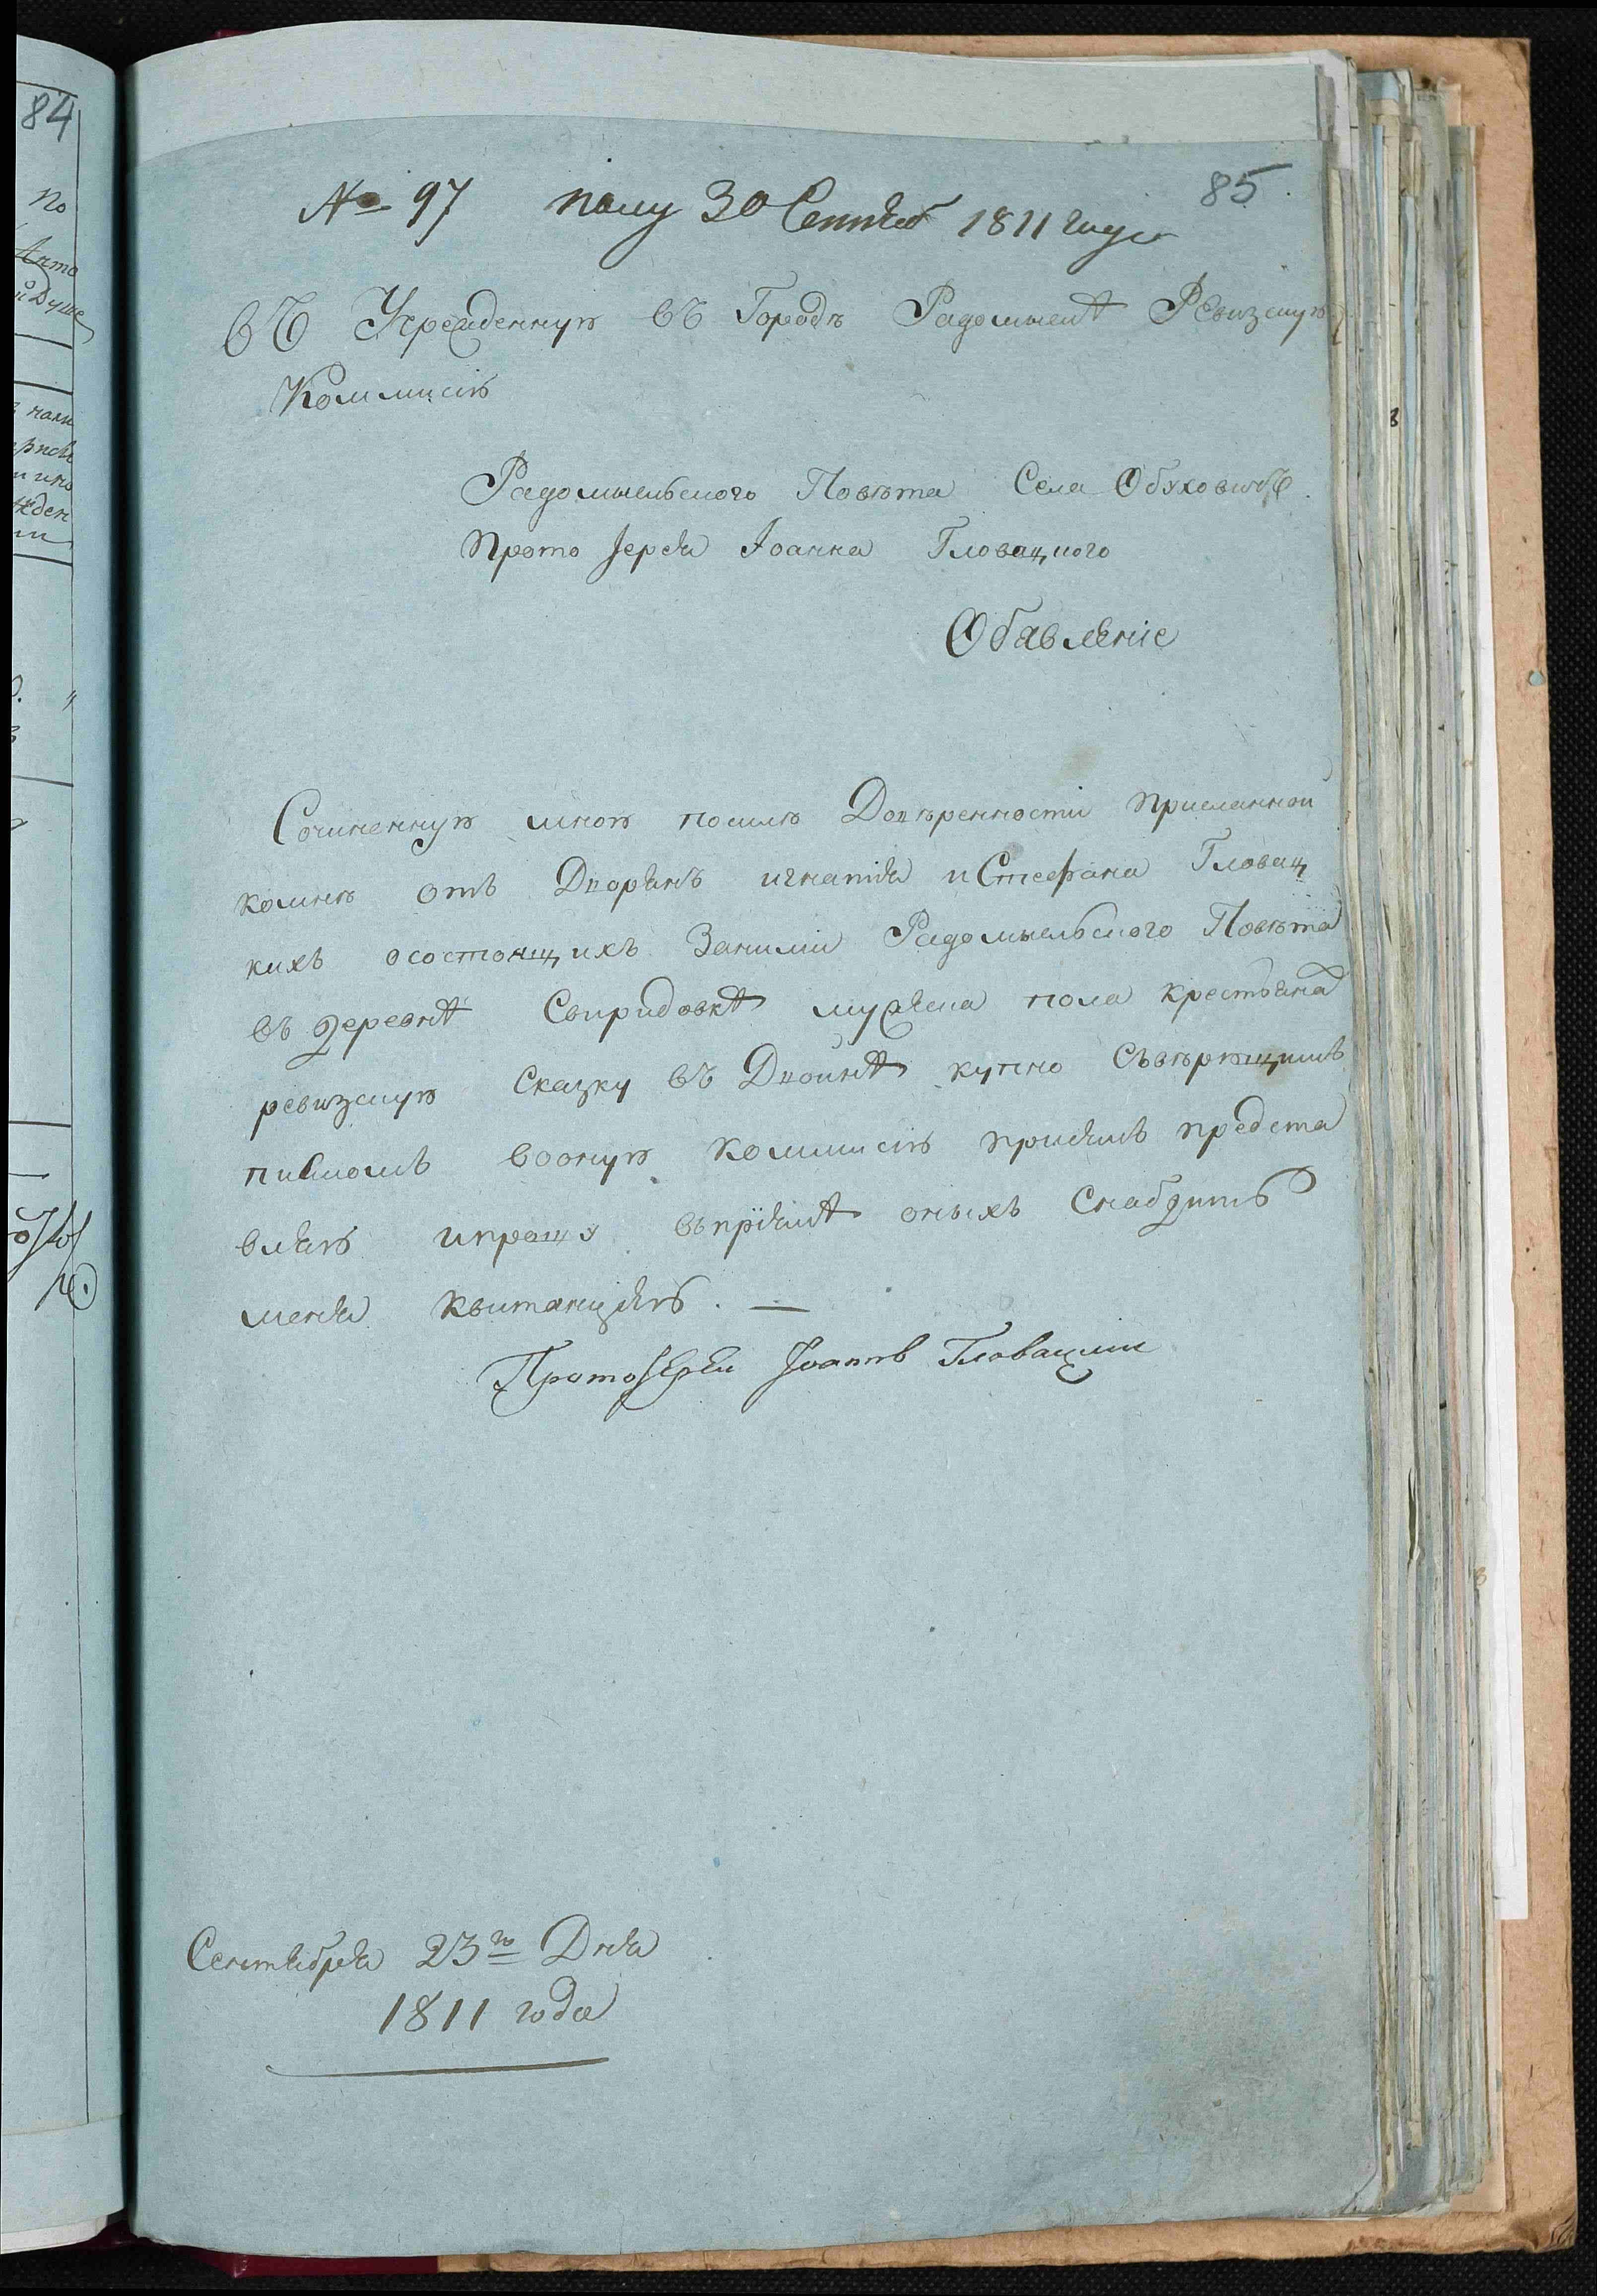 84
по
85
№ 97 полу 30 Сентяб 1811 году
въ Учрежденную въ Городѣ Радомыслѣ Ревизскую
Коммисію
Радомысльского Повѣта Села Обуховичъ.
Прото Іерея Іоанна Гловацкого
Обавленіе
Сочиненную мною посилѣ Довѣренности присланной
комнѣ отъ Дворянъ игнатія и Стефана Гловац
кихъ осостоящихъ Заними Радомысльского Повѣта
въ деревнѣ Свиридовкѣ мужеска пола крестьяна
ревизскую Сказку въ Двойнѣ купно Съвѣрющимъ
писмомъ вооную коммисію приемлю предста
влять ипрошу въпріемѣ оныхъ Снабдить
меня квитанціею. —
Протоіерей Іоаннъ Гловацкий
Сентября 23го Дня
1811 года